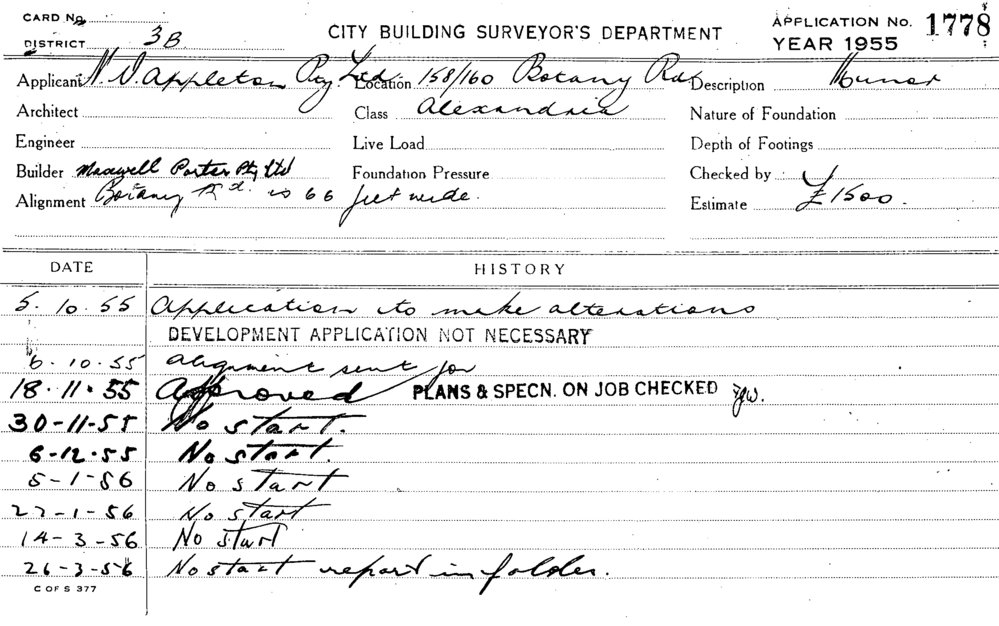 CARD No.
CITY BUILDING SURVEYOR'S DEPARTMENT
APPLICATION No. 1778
DISTRICT 3B
YEAR 1955
Applicant Appleton Pty. Ltd. Location 158/160 Botany Rd. Description
Architect Class Alexandria Nature of Foundation
Engineer Live Load Depth of Footings
Builder Maxwell Porter Pty Ltd Foundation Pressure Checked by
Alignment Botany Rd. is 66 feet wide. Estimate £1500.
DATE HISTORY
5.10.55 Application to make alterations
DEVELOPMENT APPLICATION NOT NECESSARY
6.10.55 Alignment sent for
18.11.55 Approved PLANS & SPECN. ON JOB CHECKED
30-11-55 No start.
6-12.55 No start.
5-1-56 No start
27-1-56 No start
14-3-56 No start
26-3-56 No start report in folder.
C OF S 377